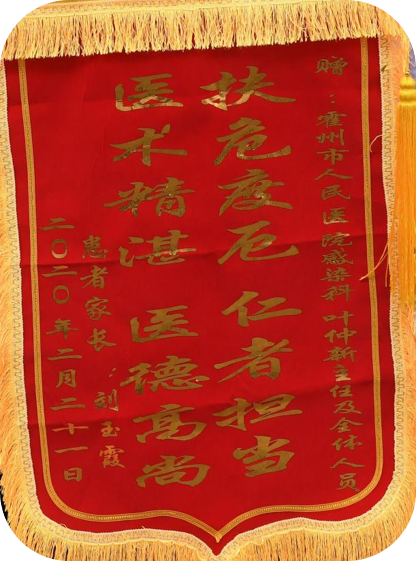 赠：霍州市人民医院感染科叶仲新主任及全体人员
扶危度厄 仁者担当
医术精湛 医德高尚
患者家长：刘玉霞
二〇二〇年二月二十一日